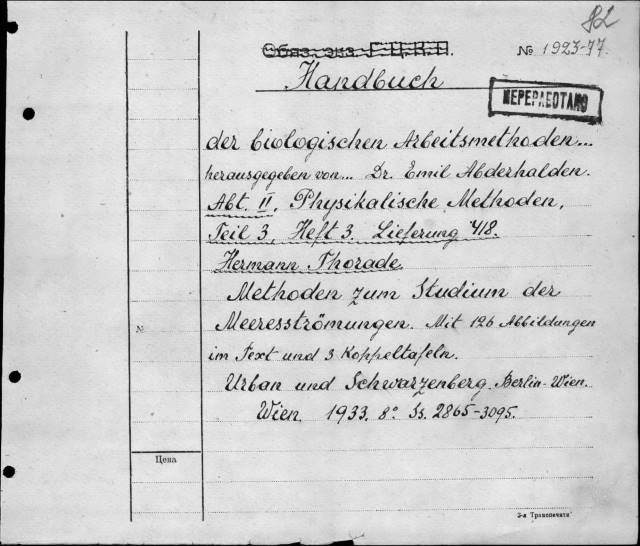 82
Обяз. экз. Г.Ц.К.П.
№ 1923-77.
Handbuch
ПЕРЕРАБОТАНО
der biologischen Arbeitsmethoden...
herausgegeben von... Dr. Emil Abderhalden.
Abt. II, Physikalische Methoden,
Teil 3, Heft 3. Lieferung 418.
Hermann Thorade
Methoden zum Studium der
Meeresströmungen. Mit 126 Abbildungen
№
im Text und 3 Koppeltafeln.
Urban und Schwarzenberg. Berlin-Wien.
Wien. 1933. 8° Ss. 2865-3095.
Цена
3-я Транспечати